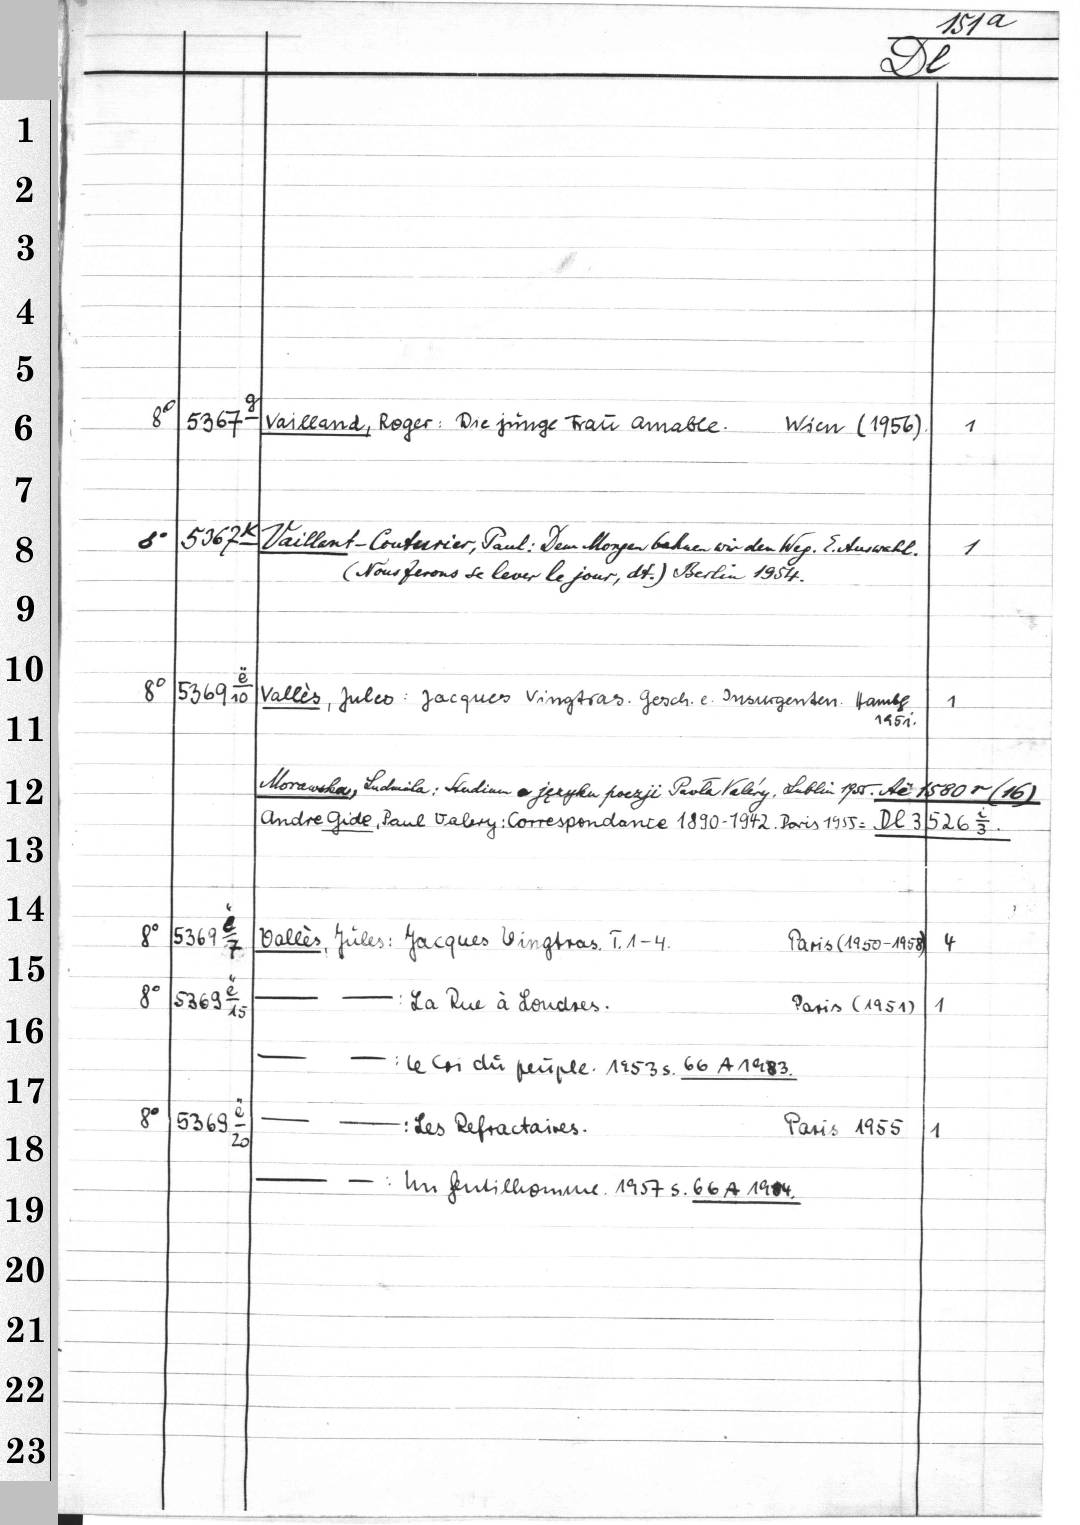 151a
Dl
1
2
3
4
5
6 8° 5367 g Vailland, Roger: Die junge Frau Amable. Wien (1956). 1
7
8 8° 5367 k Vaillant-Couturier, Paul: Dem Morgen bahnen wir den Weg. E. Auswahl. 1
(Nous ferons se lever le jour, dt.) Berlin 1954.
9
10 8° 5369 ë/10 Vallès, Jules: Jacques Vingtras. Gesch. e. Insurgenten. Hambg
11 1951.
12 Morawska, Ludmila: Studium o języku poezji Pawła Valéry. Lublin 1955. Aë 1580 r (16)
Andre Gide, Paul Valery: Correspondance 1890-1942. Paris 1955 = Dl 3526 i/3.
13
14 8° 5369 ë/7 Vallès, Jules: Jacques Vingtras. T. 1-4. Paris (1950-1958) 4
15
8° 5369 ë/15 — — : La Rue à Londres. Paris (1951) 1
16
— — : Le Cri du peuple. 1953 s. 66 A 1983.
17
8° 5369 ë/20 — — : Les Refractaires. Paris 1955 1
18
— — : Un gentilhomme. 1957 s. 66 A 1984.
19
20
21
22
23